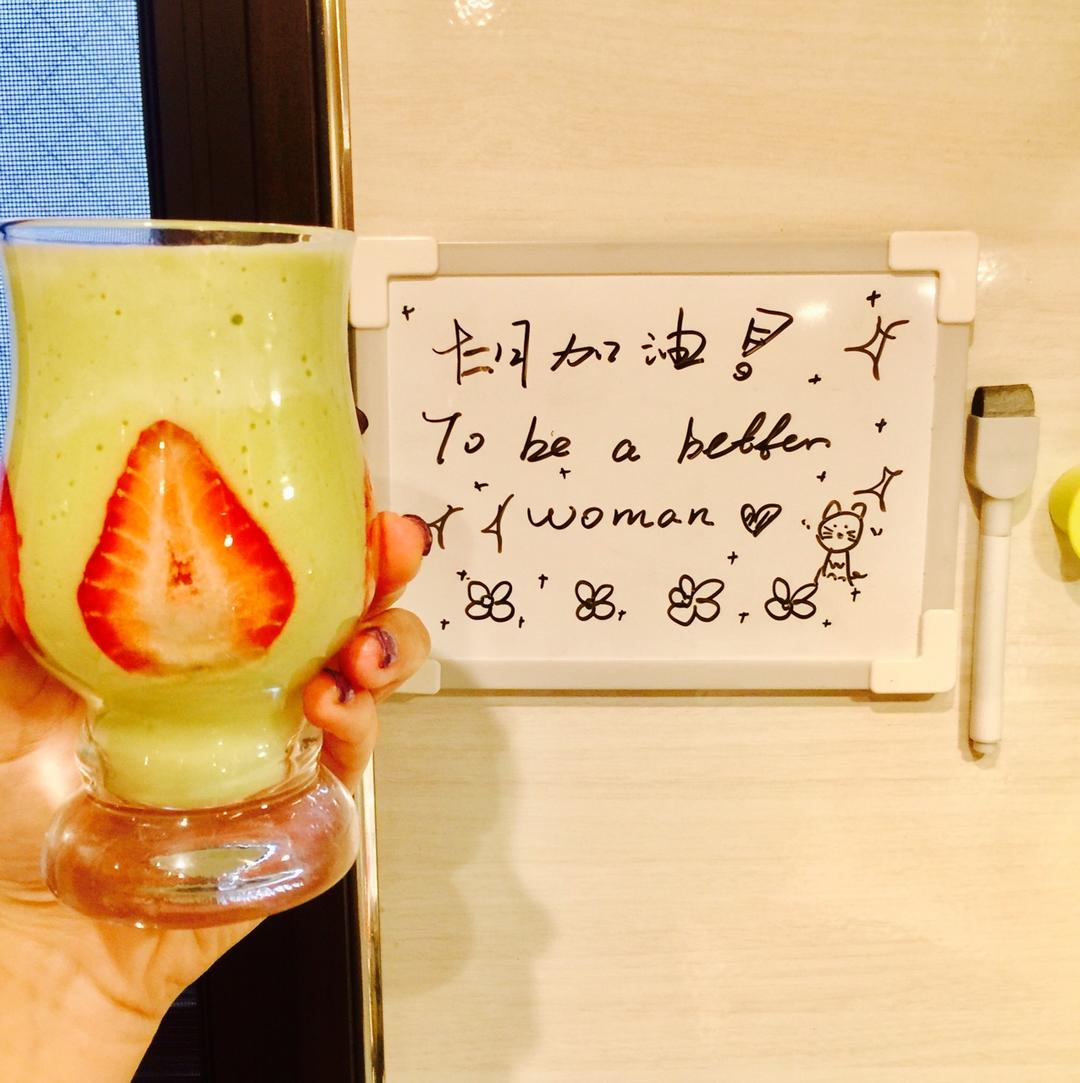 加油!
To be a better
woman